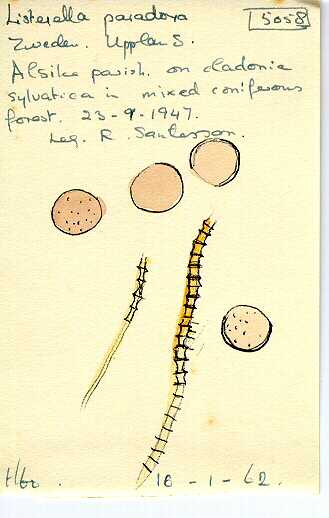 Listerella paradoxa
5058
Zweden. Upplan S.
Alsike parish. on cladonia
sylvatica in mixed coniferous
forest. 23-9-1947.
Leg. R. Santesson.
16-1-62.